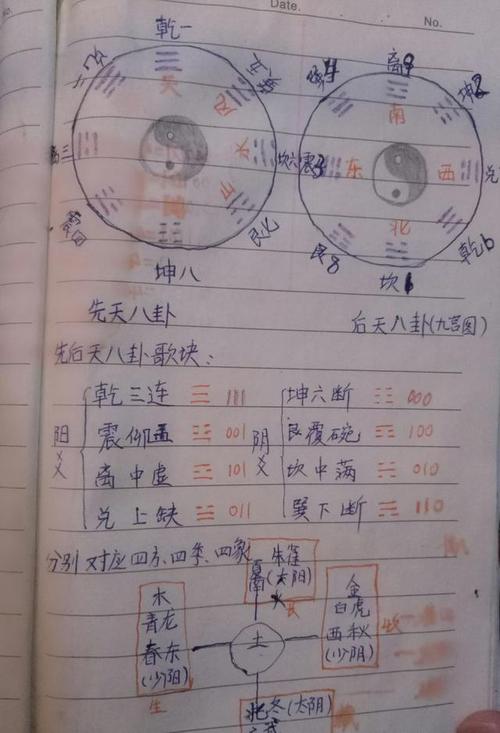 Date.
No.
乾一
兑二
巽五
天
风
三
水
坎六
山
艮七
坤八
离9
坤2
南
震3
东
西
兑
北
艮8
乾6
坎1
先天八卦
后天八卦(九宫图)
先后天八卦歌块:
乾三连 ☰ 111 坤六断 ☷ 000
震仰盂 ☳ 001 艮覆碗 ☶ 100
阳爻 阴爻
离中虚 ☲ 101 坎中满 ☵ 010
兑上缺 ☱ 011 巽下断 ☴ 110
分别对应四方、四季、四象
朱雀
夏南(太阳)
火
长
木
青龙
春东
(少阳)
生
土
金
白虎
西秋
(少阴)
收
北冬(太阴)